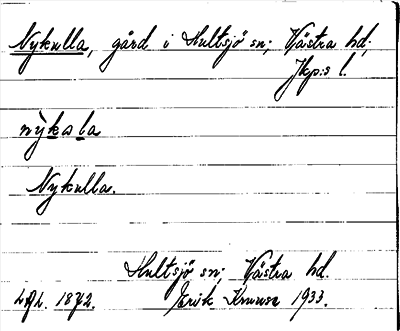 Nykulla, gård i Hultsjö sn; Västra hd;
Jkp:s l.
nỳksla
Nykulla.
Hultsjö sn; Västra hd.
1872. Erik 1933.